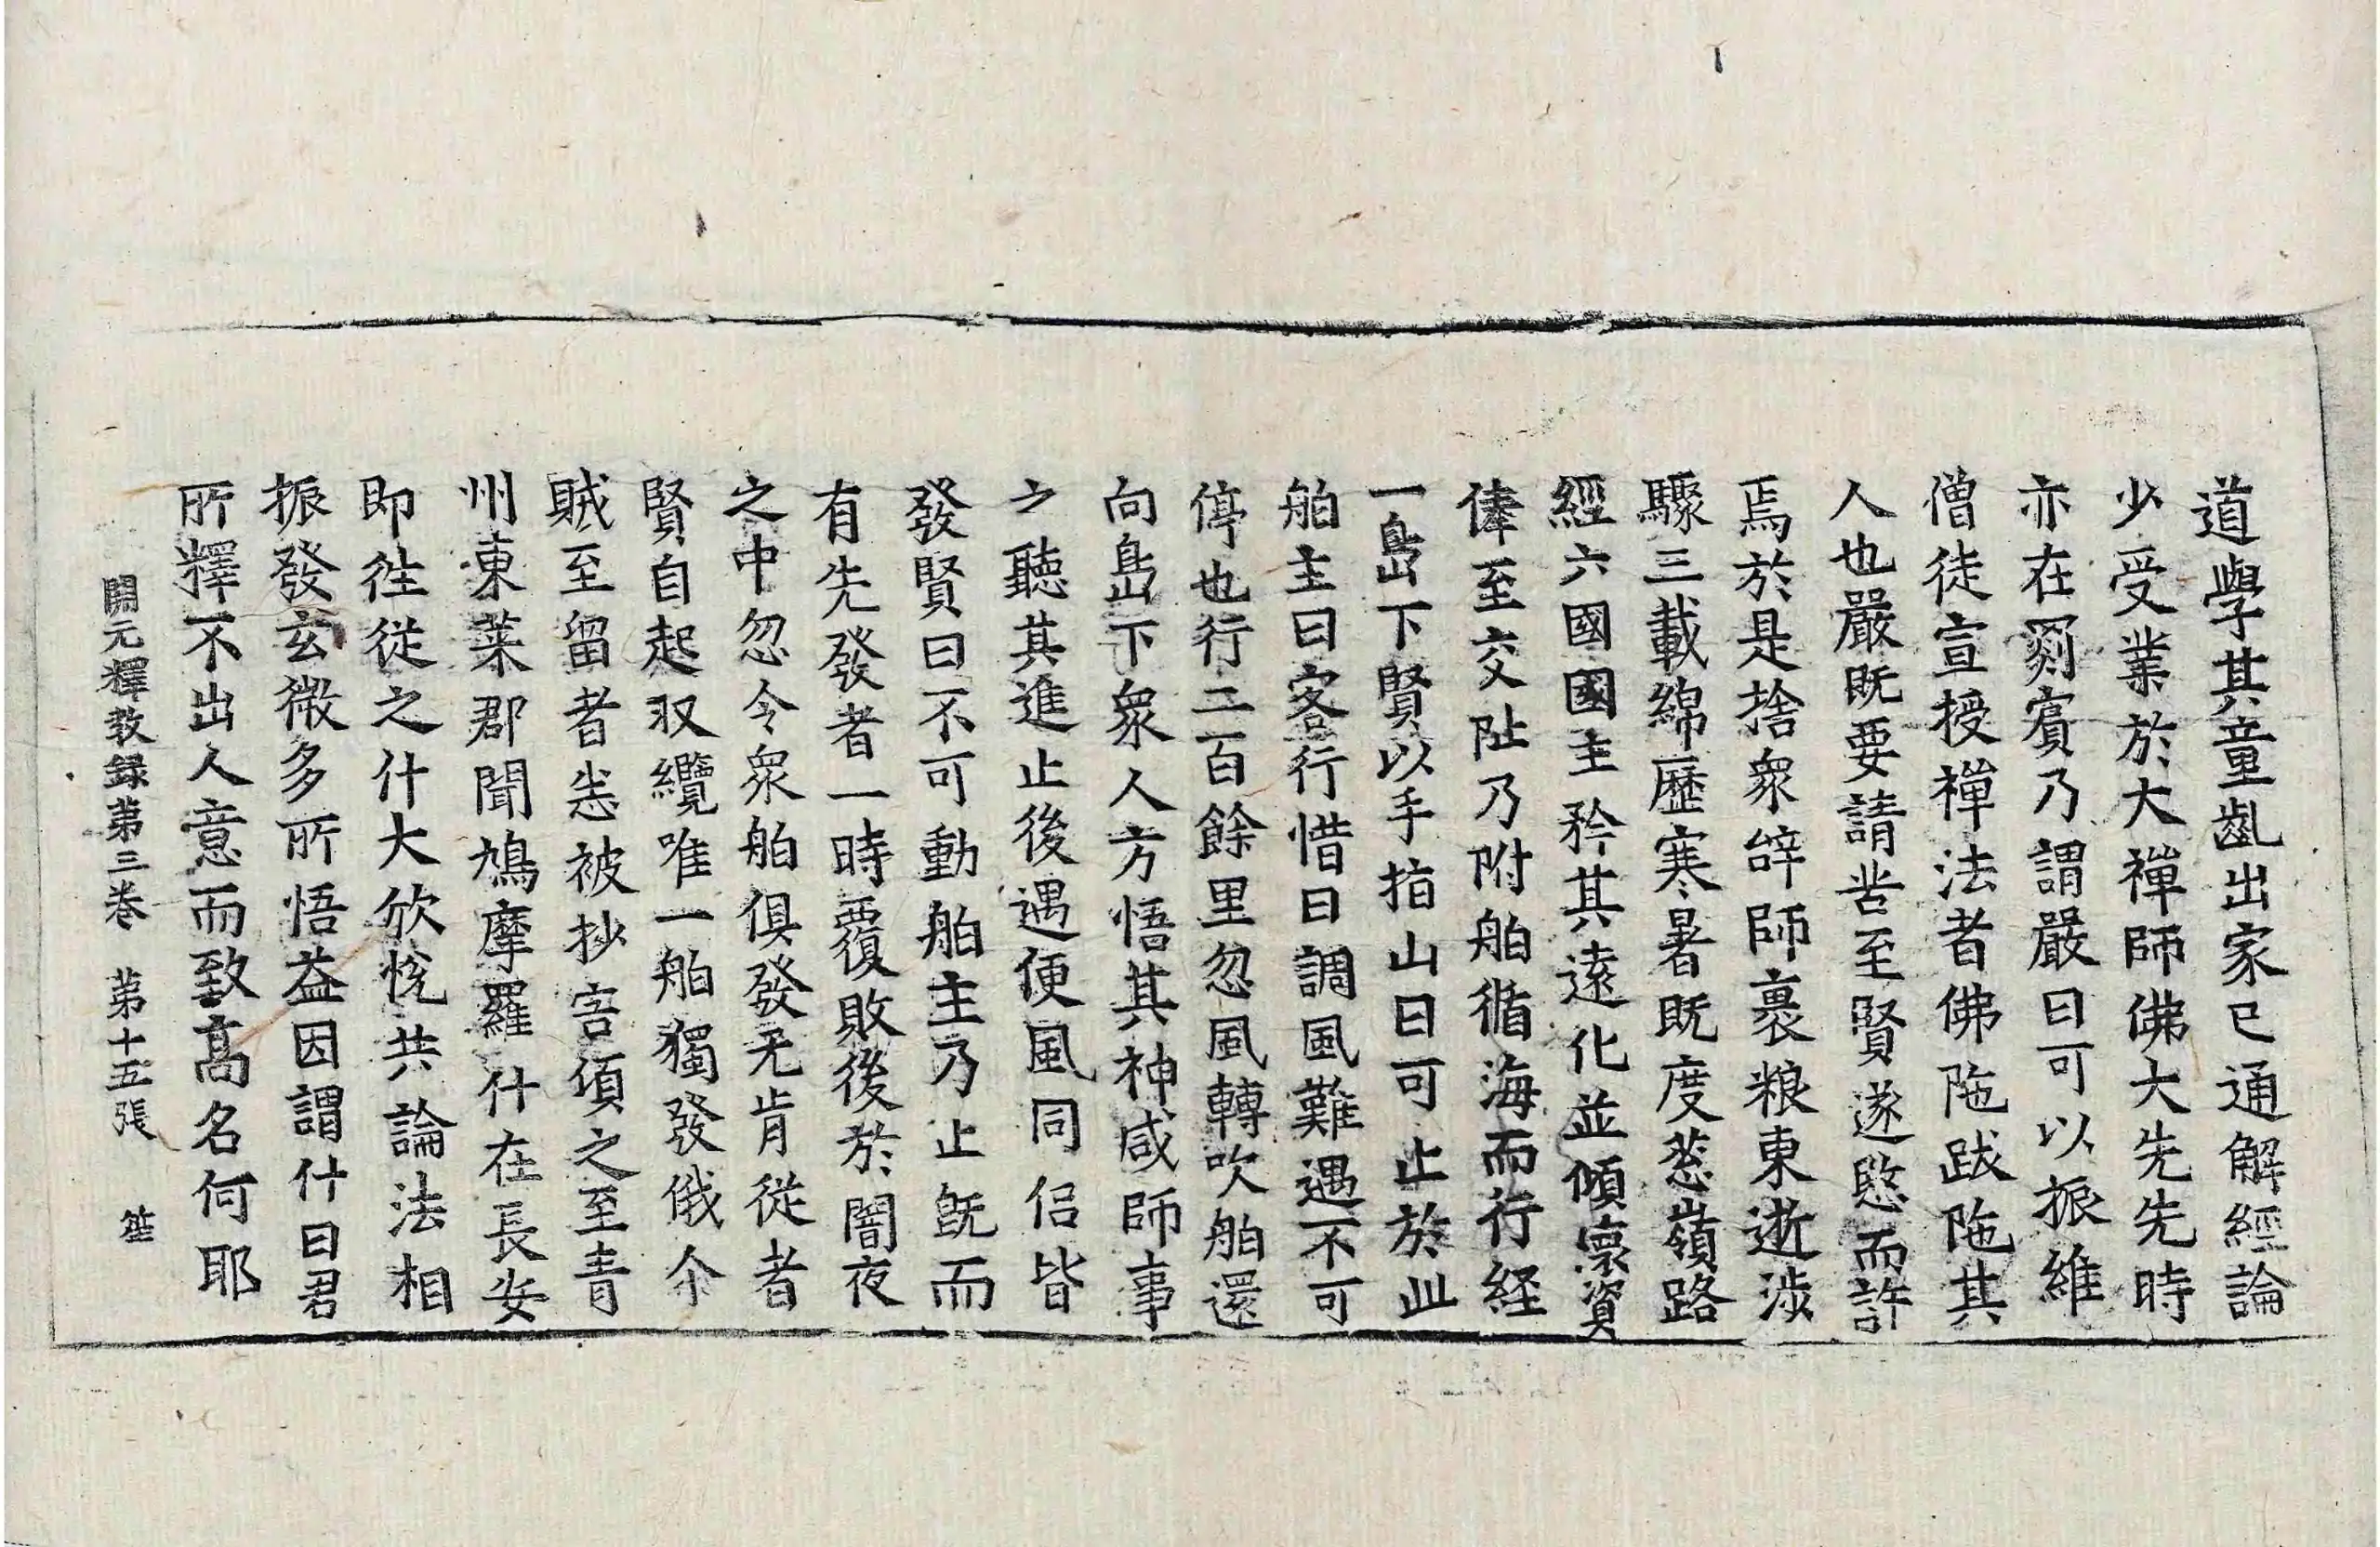 道學其童齓出家已通解經論
少受業於大禪師佛大先先時
亦在罽賓乃謂嚴曰可以振維
僧徒宣授禪法者佛陁跋陁其
人也嚴既要請苦至賢遂愍而許
焉於是捨衆辝師裹粮東逝涉
驟三載綿歷寒暑既度葱嶺路
經六國國主矜其遠化並傾懷資
俸至交阯乃附舶循海而行経
一㠀下賢以手指山曰可止於此
舶主曰客行惜日調風難遇不可
停也行二百餘里忽風轉吹舶還
向㠀下衆人方悟其神咸師事
之聽其進止後遇便風同侣皆
發賢曰不可動舶主乃止既而
有先發者一時覆敗後於闇夜
之中忽令衆舶俱發无肯從者
賢自起収纜唯一舶獨發俄尒
賊至留者悉被抄害頃之至青
州東萊郡聞鳩摩羅什在長安
即徃從之什大欣悅共論法相
振發玄微多所悟益因謂什曰君
所釋不出人意而致髙名何耶
開元釋教録第三卷　第十五張　笙